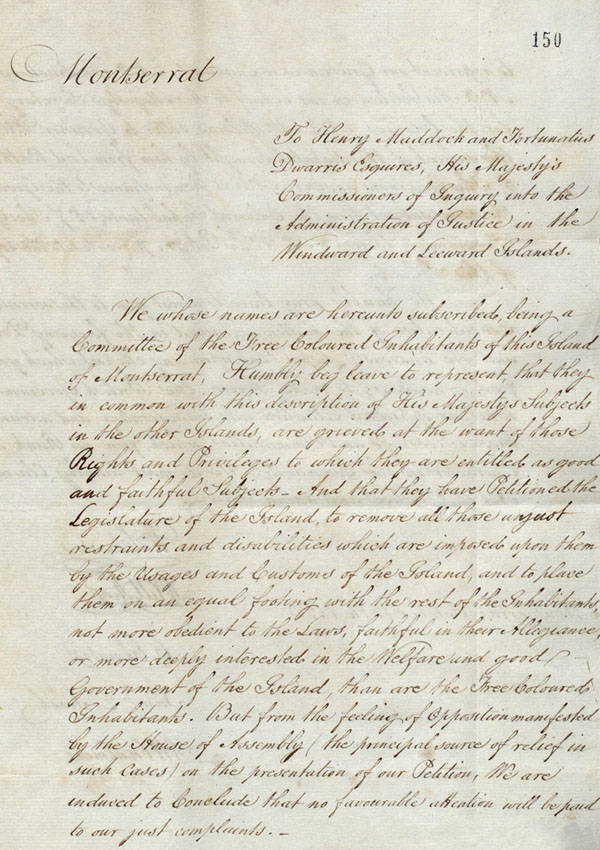 150
Montserrat
To Henry Maddock and Fortunatus
Dwarris Esquires, His Majesty's
Commissioners of Inquiry into the
Administration of Justice in the
Windward and Leeward Islands.
We whose names are hereunto subscribed, being a
Committee of the Free Coloured Inhabitants of this Island
of Montserrat, Humbly beg leave to represent, that they
in common with this description of His Majesty's Subjects
in the other Islands, are grieved at the want of those
Rights and Privileges to which they are entitled as good
and faithful Subjects – And that they have Petitioned the
Legislature of the Island, to remove all those unjust
restraints and disabilities which are imposed upon them
by the Usages and Customs of the Island, and to place
them on an equal footing with the rest of the Inhabitants,
not more obedient to the Laws, faithful in their Allegiance,
or more deeply interested in the Welfare and good
Government of the Island, than are the Free Coloured
Inhabitants. But from the feeling of Opposition manifested
by the House of Assembly (the principal source of relief in
such Cases) on the presentation of our Petition, We are
induced to Conclude that no favourable attention will be paid
to our just complaints. –